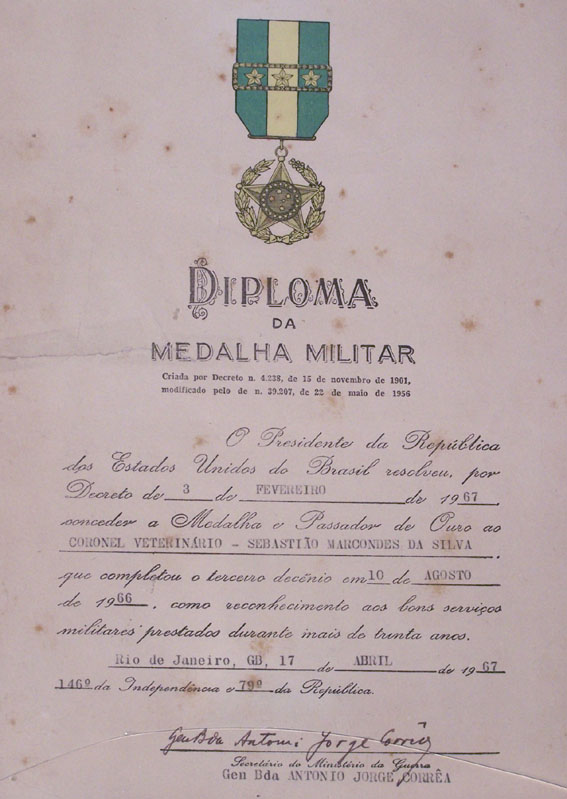 DIPLOMA
DA
MEDALHA MILITAR
Criada por Decreto n. 4.238, de 15 de novembro de 1901,
modificado pelo de n. 39.207, de 22 de maio de 1956
O Presidente da República
dos Estados Unidos do Brasil resolveu, por
Decreto de 3 de FEVEREIRO de 1967
conceder a Medalha e Passador de Ouro ao
CORONEL VETERINÁRIO - SEBASTIÃO MARCONDES DA SILVA
que completou o terceiro decênio em 10 de AGOSTO
de 1966, como reconhecimento aos bons serviços
militares prestados durante mais de trinta anos.
Rio de Janeiro, GB, 17 de ABRIL de 1967
146º da Independência e 79º da República.
Gen Bda Antonio Jorge Corrêa
Secretário do Ministério da Guerra
Gen Bda ANTONIO JORGE CORRÊA